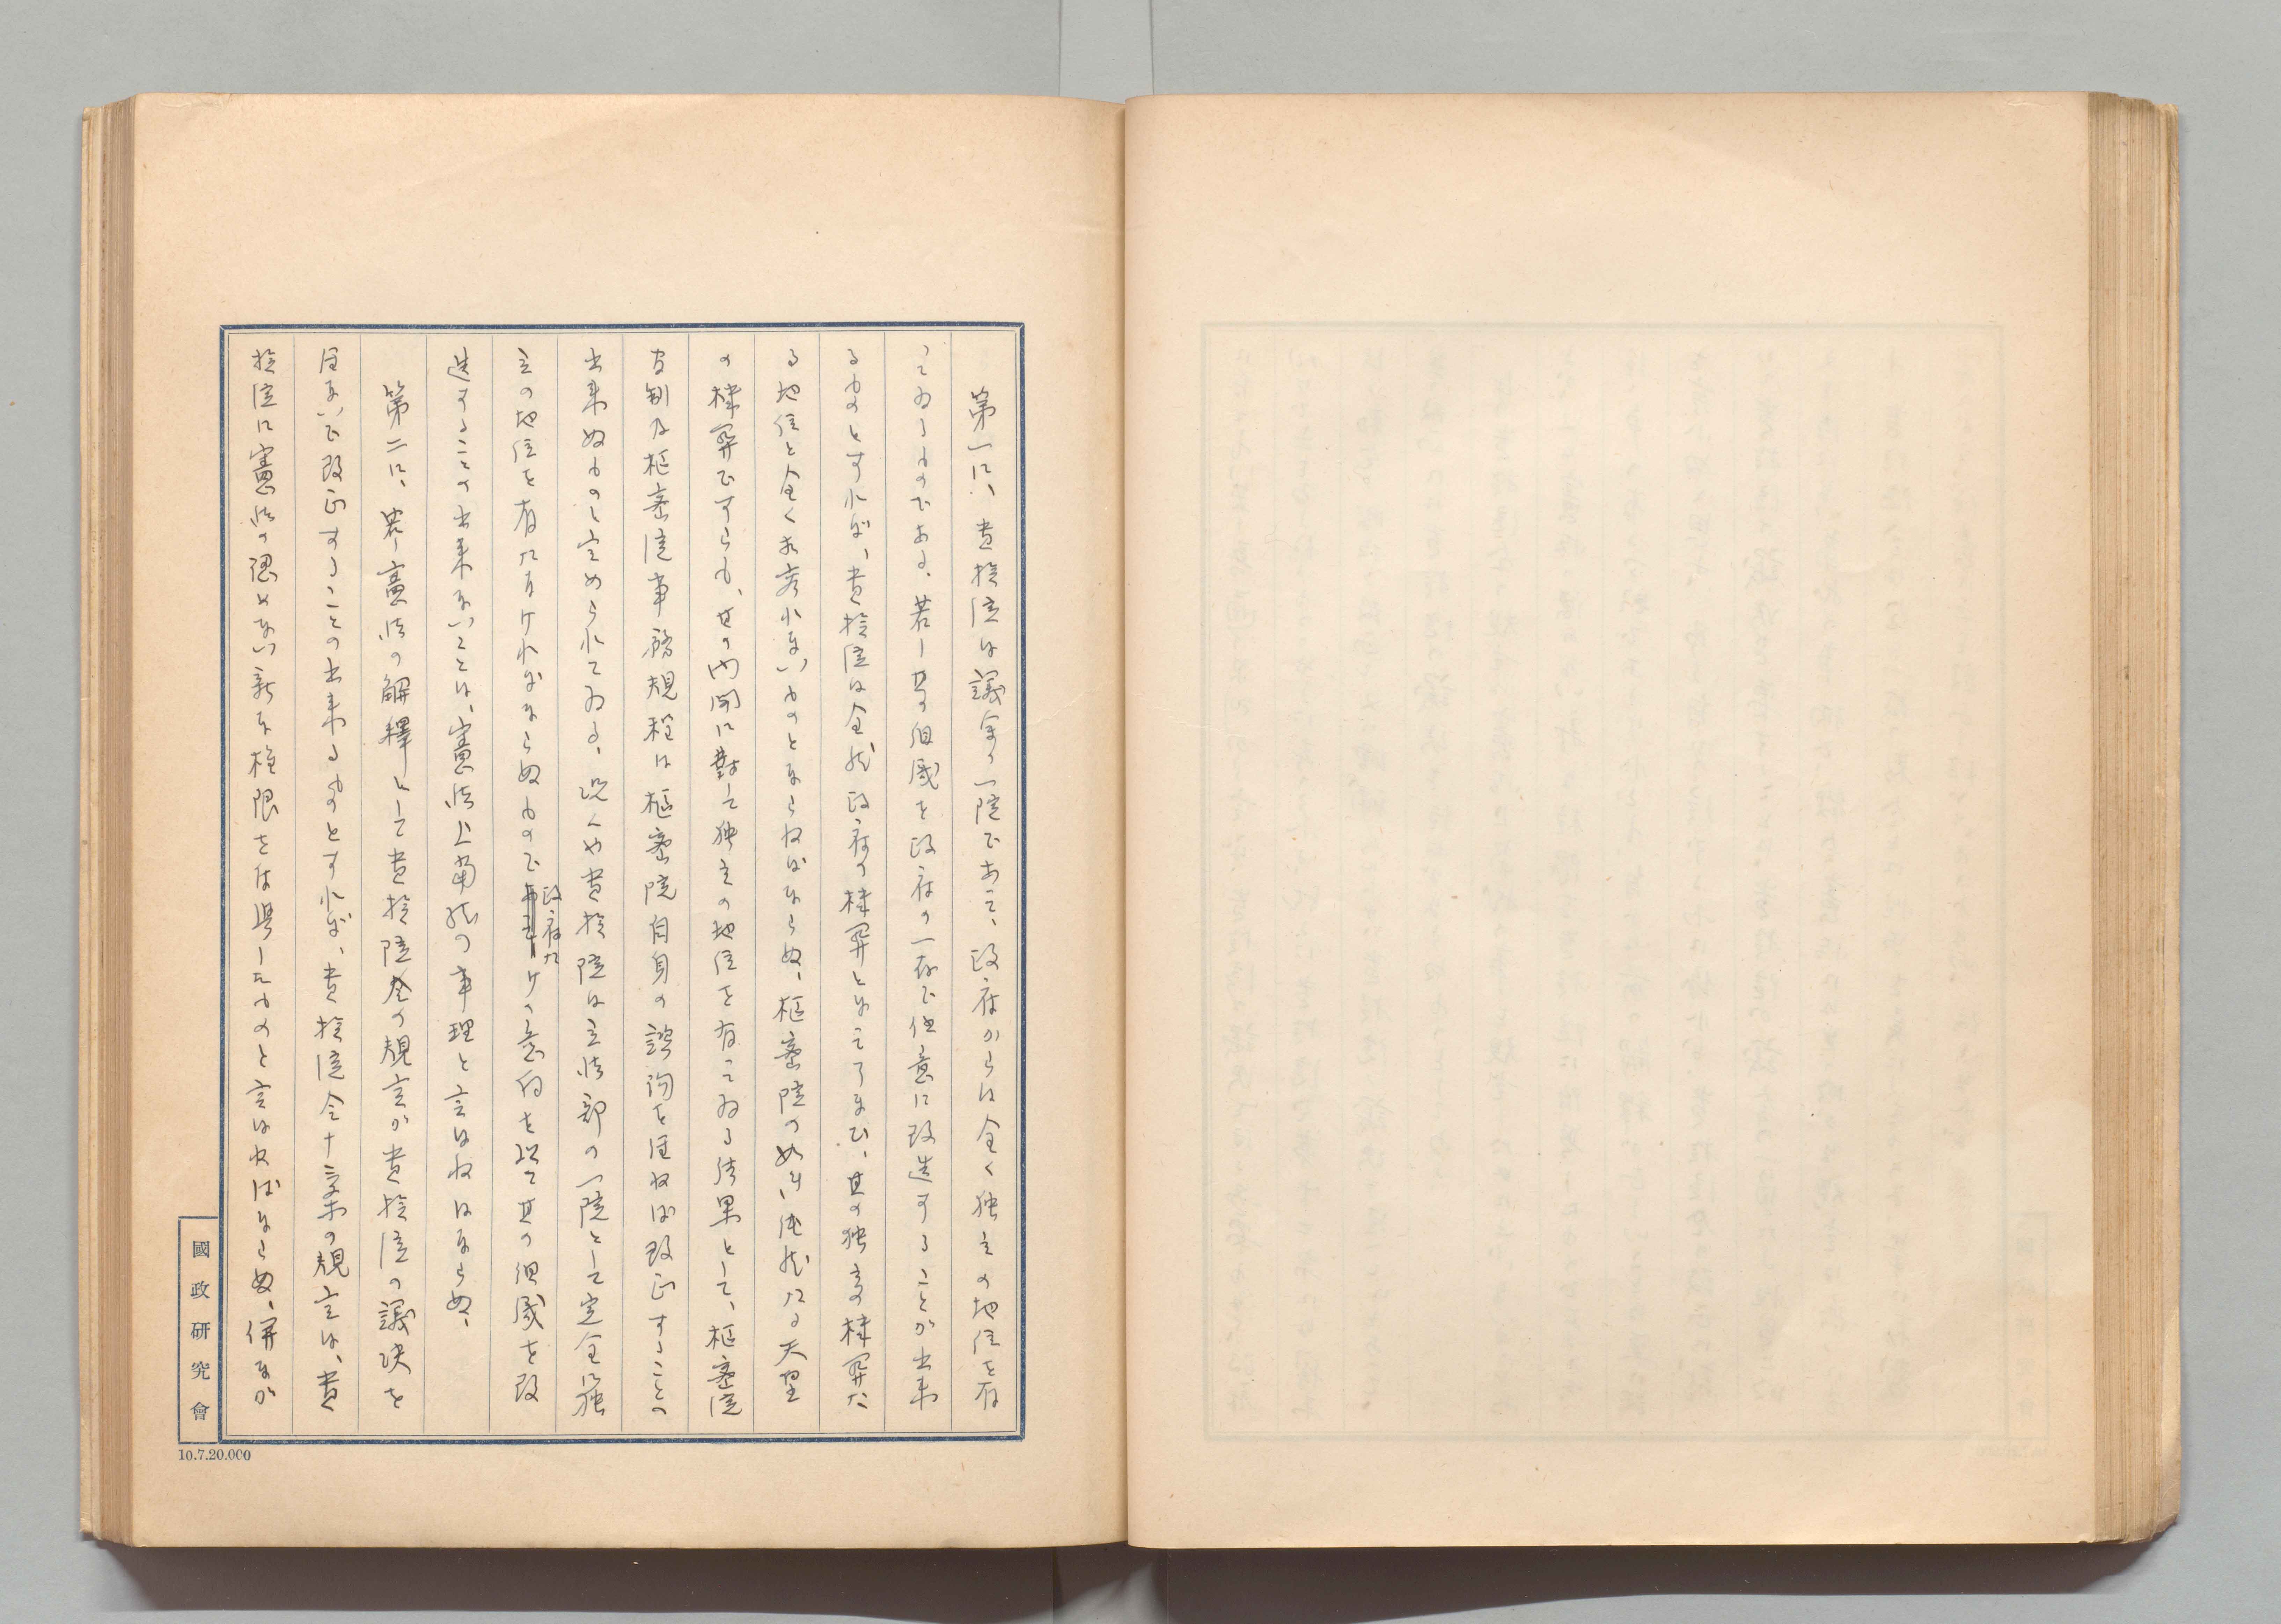 第一に、貴族院は議会の一院であつて、政府からは全く独立の地位を有
つてゐるものである、若し其の組織を政府の一存で任意に改造することが出来
るものとすれば、貴族院は全然政府の機関となつて了まひ、其の独立の機関た
る地位と全く相容れないものとならねばならぬ、枢密院の如き、純然たる天皇
の機関ですらも、其の内閣に対して独立の地位を有つてゐる結果として、枢密院
官制及枢密院事務規程は枢密院自身の諮詢を経ねば改正することの
出来ぬものと定められてゐる、況んや貴族院は立法部の一院として完全に独
立の地位を有たなければならぬもので政府だけの意向を以て其の組織を改
造することの出来ないことは、憲法上当然の事理と言はねばならぬ、
第二に、若し憲法の解釋として貴族院令の規定が貴族院の議決を
経ないで改正することの出来るものとすれば、貴族院令十三条の規定は、貴
族院に憲法の認めない新な権限をば与へたものと言はねばならぬ、併なが
國政研究會
10.7.20.000